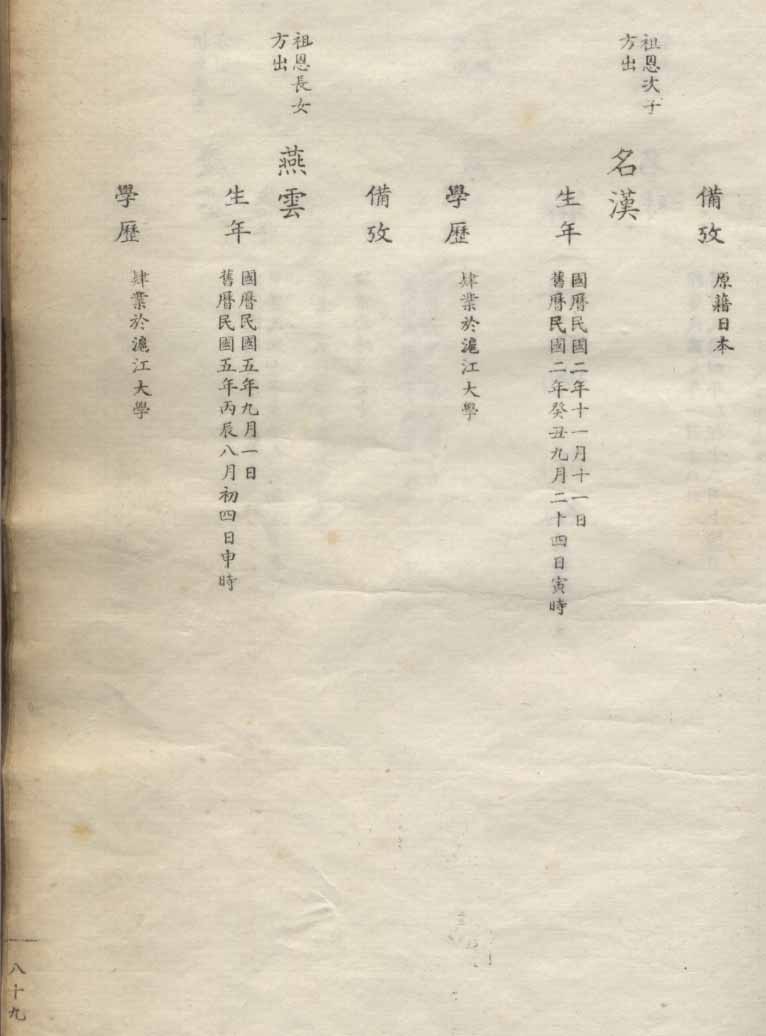 備攷
原籍日本
祖恩次子
方出
名漢
生年
國曆民國二年十一月十一日
舊曆民國二年癸丑九月二十四日寅時
學歷
肄業於滬江大學
備攷
祖恩長女
方出
燕雲
生年
國曆民國五年九月一日
舊曆民國五年丙辰八月初四日申時
學歷
肄業於滬江大學
八十九